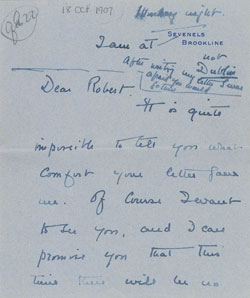 9627
18 Oct. 1907
Sunday night.
SEVENELS
BROOKLINE
I am at
not
Dublin
After writing my letter I was
afraid you would
Dear Robert.
It is quite
impossible to tell you what
comfort your letter gave
me. Of course I want
to see you, and I can
promise you that this
time there will be no